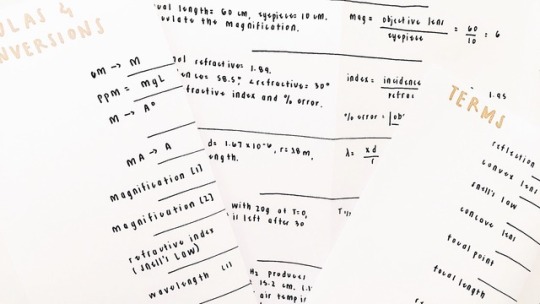 ULAS &
NVERSIONS
M → M
PPM = mgL
M → A°
MA → A
magnification [1]
magnification [2]
refractive index
(snell's LAW)
wavelength (1)
length = 60 cm, eyepiece = 10 cm.
ulate the magnification.
refractive: 1.89.
58.5° refractive: 30°
fractive index and % error.
d = 1.67 x 10⁻⁶, r = 38 m,
ength.
with 20g at T=0,
left after 30
Hz produces
15.2 cm.
air temp
mag = objective lens / eyepiece = 60 / 10 = 6
index = incidence
% error =
λ = xd / r
TERMS
1.95
reflection
convex
snell's law
concave lens
focal point
focal length